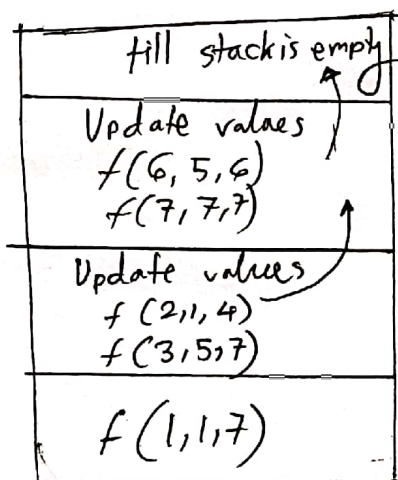 till stack is empty
Update values
f(6, 5, 6)
f(7, 7, 7)
Update values
f (2, 1, 4)
f (3, 5, 7)
f (1, 1, 7)